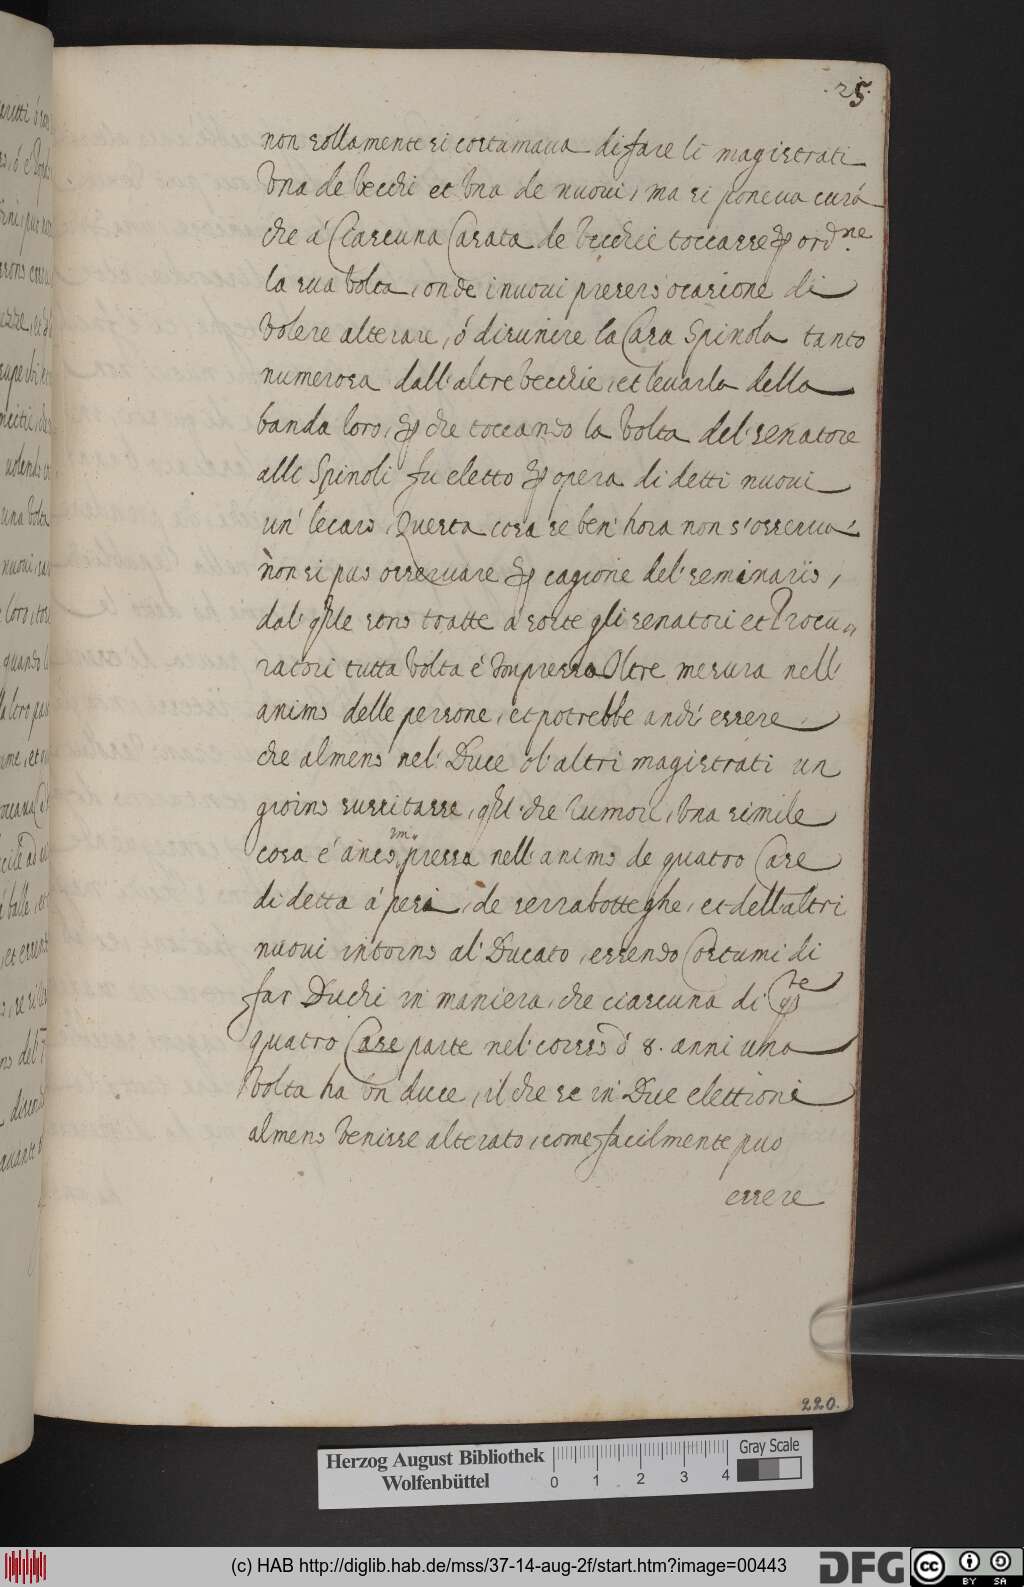 25.
non sollamente si costumaua di fare li magistrati
Vna de Vecchi et Vna de nuoui, ma si poneua cura
che á Ciascuna Casata de Vecchie toccasse per ordne.
la sua Volta, onde i nuoui presero ocasione di
Volere alterare, ó disunire la Casa Spinola tanto
numerosa dall'altre Vecchie, et leuarla dalla
banda loro, per che toccando la Volta del' senatore
alli Spinoli fu eletto per opera di detti nuoui
un' lecaro, Questa cosa se ben' hora non s'osserua
non si può osseruare per cagione del' seminario,
dal' qle sono tratte á sorte gli senatori et Procu=
ratori tutta Volta é Impressa Oltre mesura nell'
animo delle persone, et potrebbe anch' essere
che almeno nel' Duce ol' altri magistrati un
giorno sussitasse, qel' che Rumori, Vna simile
cosa é anco impressa nell' animo de quatro Case
di detta á pesi, de serrabotteghe, et dell'altri
nuoui intorno al' Ducato, essendo Costumi di
far Duchi in maniera, che ciascuna di qste
quatro Case parte nel' corso d' 8. anni una
Volta ha Vn duce, il che se in Due elettioni
almeno Venisse alterato, come facilmente puo
essere
220.
Herzog August Bibliothek
Wolfenbüttel
0 1 2 3 4
Gray Scale
(c) HAB http://diglib.hab.de/mss/37-14-aug-2f/start.htm?image=00443
DFG
cc BY SA